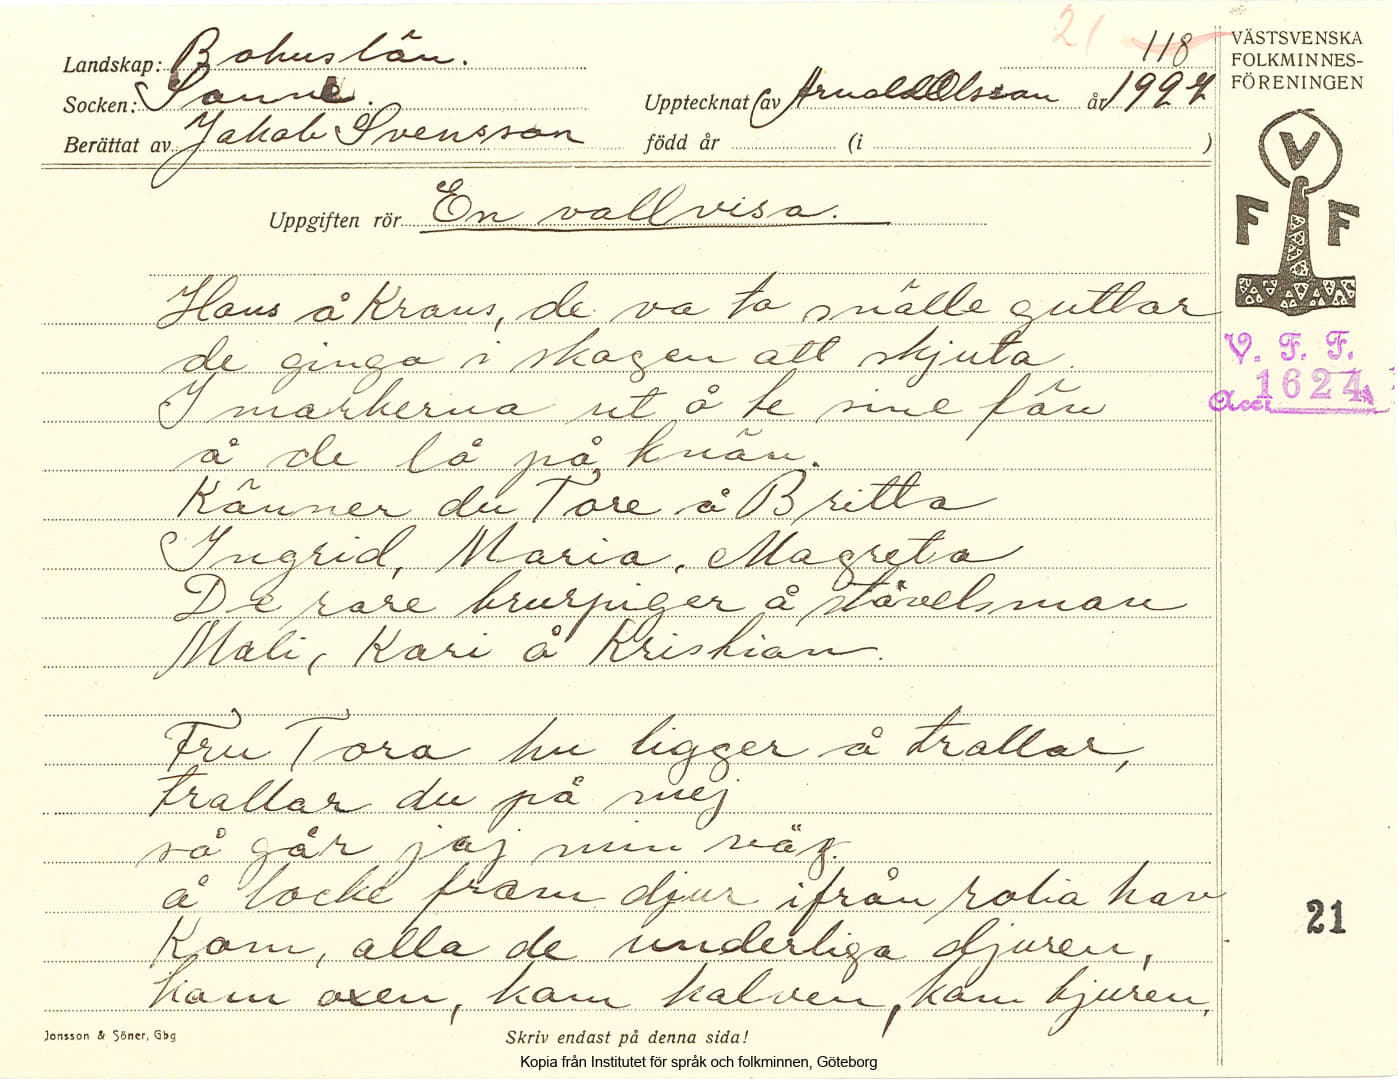 21
118
Landskap: Bohuslän.
Socken: Sanne.
Upptecknat av Arnold Olsson år 1927
Berättat av Jakob Svensson född år (i )
VÄSTSVENSKA
FOLKMINNES-
FÖRENINGEN
V
F F
Uppgiften rör En vallvisa.
V. F. F.
Acc. 1624
Hans å Krans, de va to snälle guttar
de ginga i skogen att skjuta.
I markerna ut å te sine fän
å de lå på knän.
Känner du Tore å Britta
Ingrid, Maria, Magreta
De rare brurpiger å stövelsman
Mali, Kari å Kristian.
Fru Tora hu ligger å trallar,
trallar du på mej
så går jaj min väg.
å locke fram djur ifrån rolia hav
Kom, alla de underliga djuren,
kom oxen, kom kalven, kom tjuren,
21
Jonsson & Söner, Gbg
Skriv endast på denna sida!
Kopia från Institutet för språk och folkminnen, Göteborg